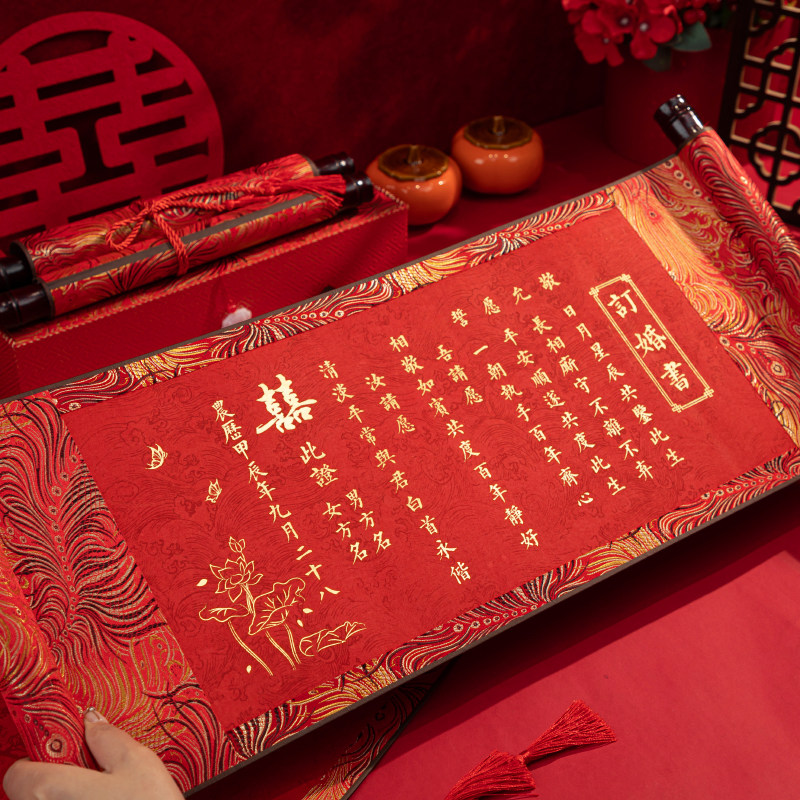 訂婚書
敬日月星辰共鑒此生
允長相廝守不離不弃
愿平安順遂共度此生
誓一朝執手百年齊心
吾請愿
相敬如賓共度百年靜好
汝請愿
清淡平常與君白首永偕
此證
男方名
女方名
囍
農歷甲辰年九月二十八
囍